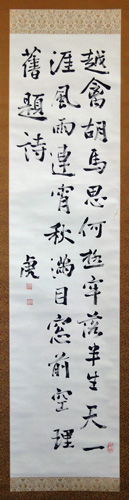 越禽胡馬思何極牢落半生天一
涯風雨連宵秋滿目窓前空理
舊題詩
虎